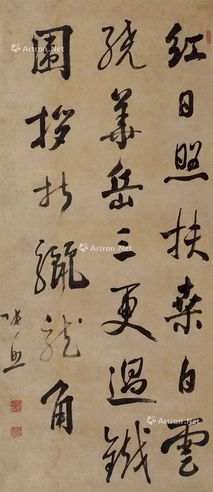 紅日照扶桑白雲
繞華岳三更過鐵
圍拶折驪龍角
Artron.Net
Artron.Net
Artron.Net